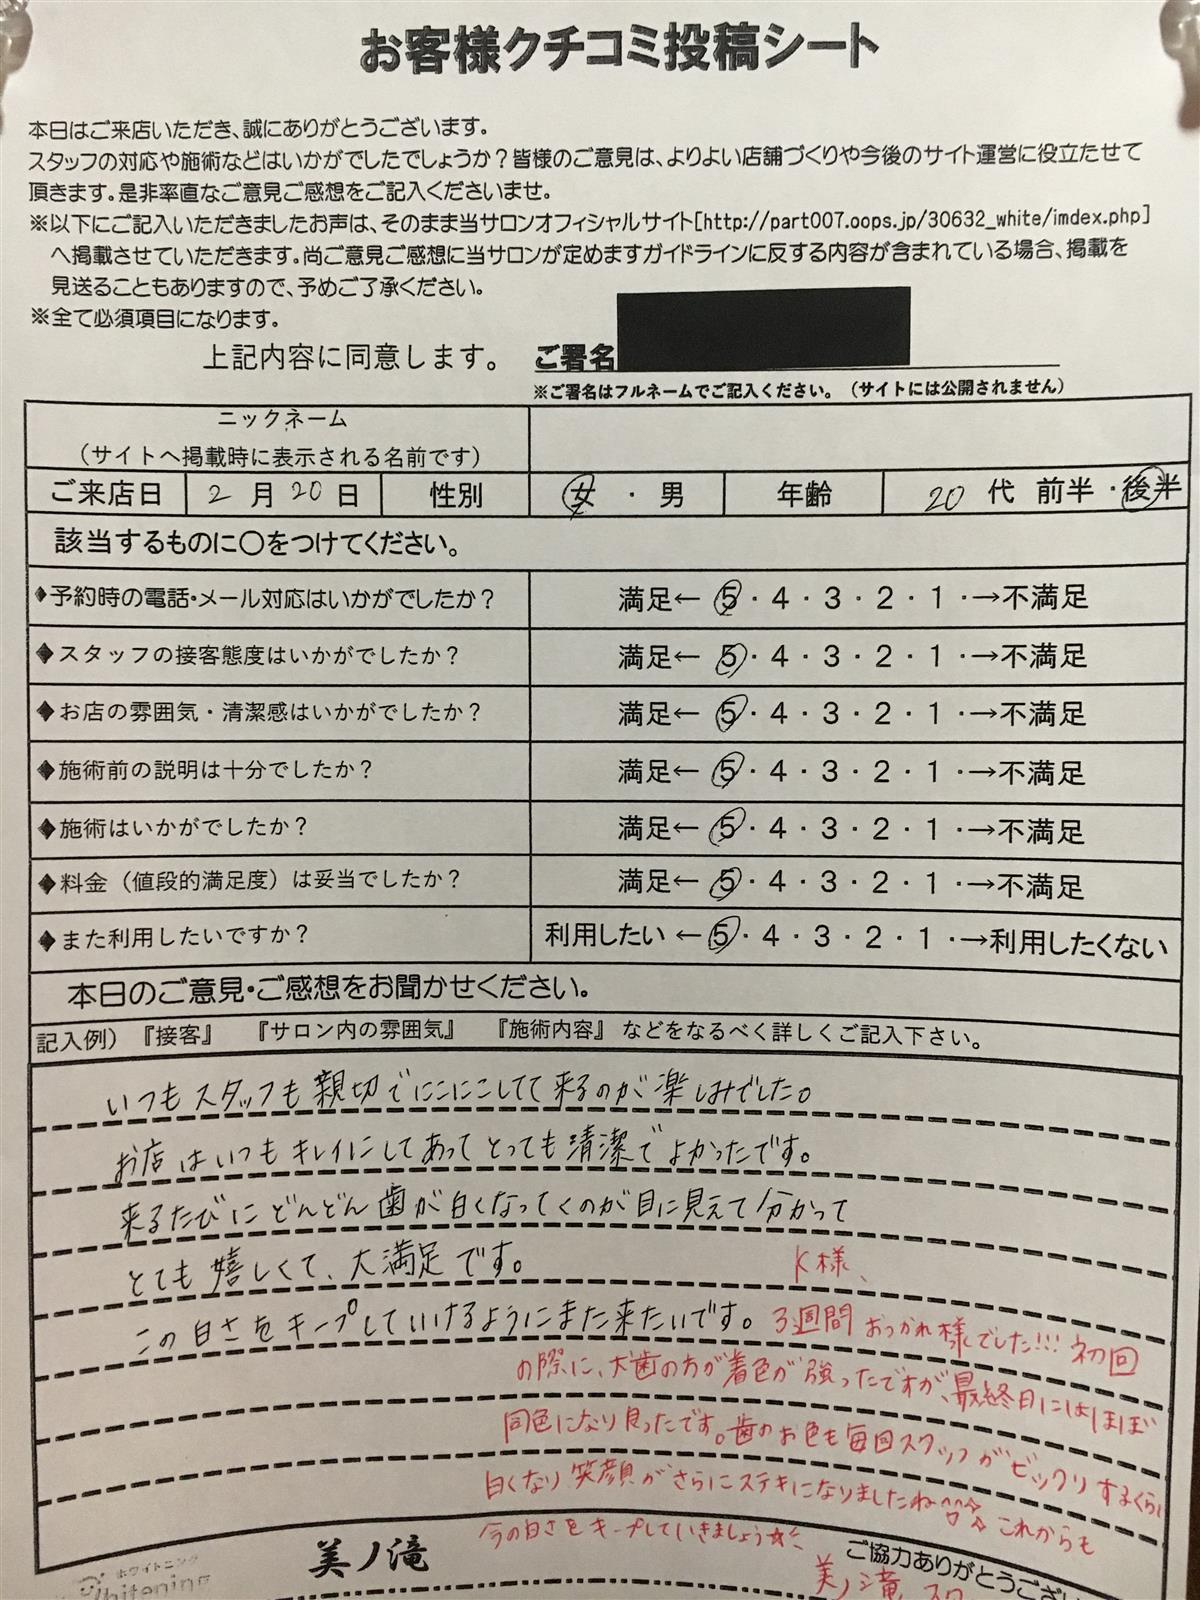 お客様クチコミ投稿シート
本日はご来店いただき、誠にありがとうございます。
スタッフの対応や施術などはいかがでしたでしょうか？皆様のご意見は、よりよい店舗づくりや今後のサイト運営に役立たせて
頂きます。是非率直なご意見ご感想をご記入くださいませ。
※以下にご記入いただきましたお声は、そのまま当サロンオフィシャルサイト[http://part007.oops.jp/30632_white/imdex.php]
へ掲載させていただきます。尚ご意見ご感想に当サロンが定めますガイドラインに反する内容が含まれている場合、掲載を
見送ることもありますので、予めご了承ください。
※全て必須項目になります。
上記内容に同意します。 ご署名
※ご署名はフルネームでご記入ください。（サイトには公開されません）
ニックネーム
（サイトへ掲載時に表示される名前です）
ご来店日 2月20日 性別 女・男 年齢 20代 前半・後半
該当するものに○をつけてください。
◆予約時の電話・メール対応はいかがでしたか？ 満足← 5・4・3・2・1・→不満足
◆スタッフの接客態度はいかがでしたか？ 満足← 5・4・3・2・1・→不満足
◆お店の雰囲気・清潔感はいかがでしたか？ 満足← 5・4・3・2・1・→不満足
◆施術前の説明は十分でしたか？ 満足← 5・4・3・2・1・→不満足
◆施術はいかがでしたか？ 満足← 5・4・3・2・1・→不満足
◆料金（値段的満足度）は妥当でしたか？ 満足← 5・4・3・2・1・→不満足
◆また利用したいですか？ 利用したい ←5・4・3・2・1・→利用したくない
本日のご意見・ご感想をお聞かせください。
記入例）『接客』 『サロン内の雰囲気』 『施術内容』 などをなるべく詳しくご記入下さい。
いつもスタッフも親切でにこにこしてて来るのが楽しみでした。
お店はいつもキレイにしてあってとっても清潔でよかったです。
来るたびにどんどん歯が白くなってくのが目に見えて分かって
とても嬉しくて、大満足です。
K様、
この白さをキープしていけるようにまた来たいです。
3週間おつかれ様でした!!! 初回
の際に、犬歯の方が着色が強ったですが、最終日にはほぼ
同色になり良ったです。歯のお色も毎回スタッフがビックリするくらい
白くなり笑顔がさらにステキになりましたね☆☆ これからも
今の白さをキープしていきましょう☆
ホワイトニング
whitening
美ノ滝
ご協力ありがとうござい
美ノ滝 スタ